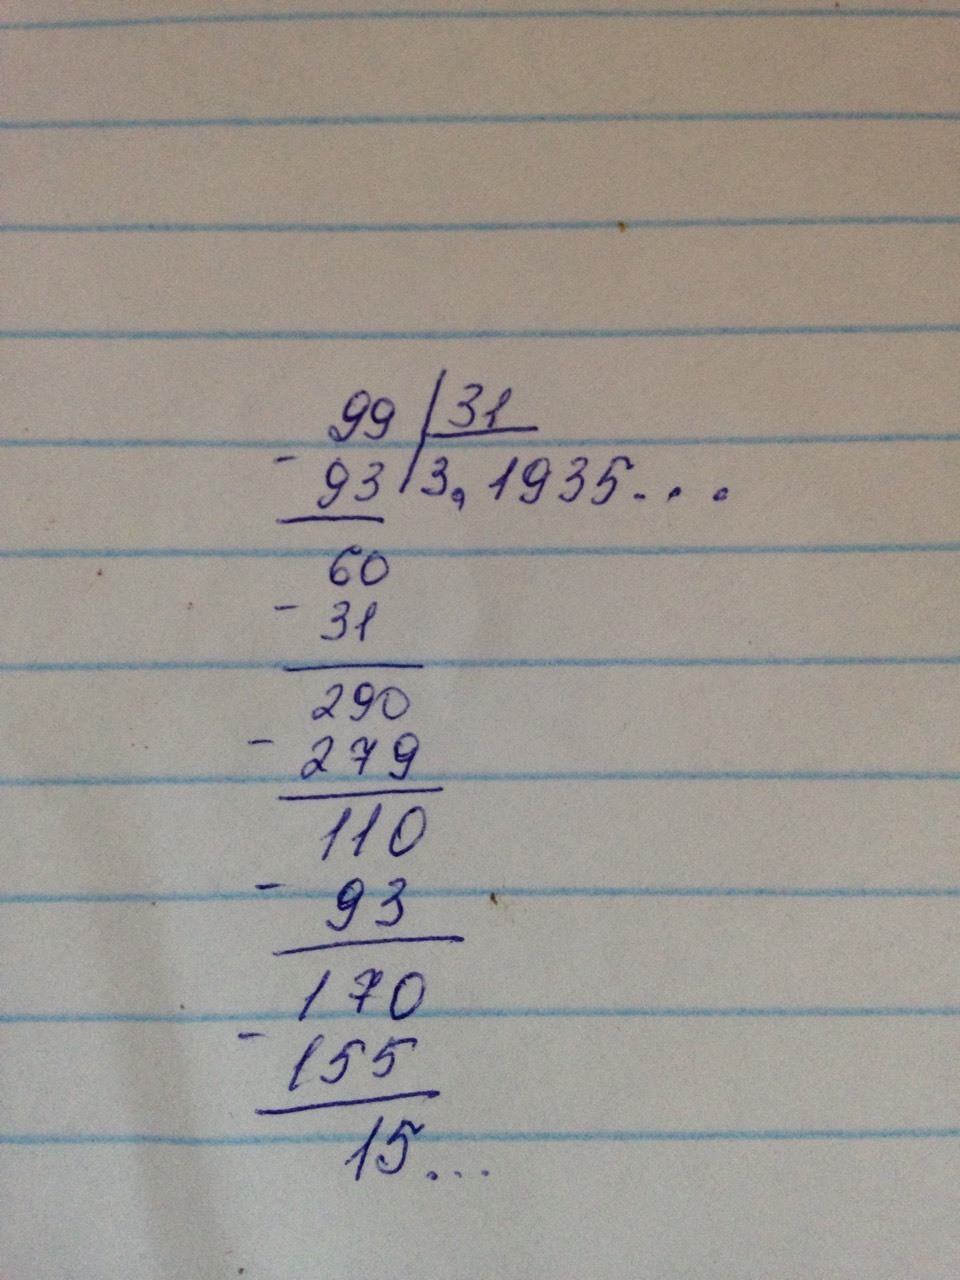 99 31
- 93 3,1935...
60
- 31
290
- 279
110
- 93
170
- 155
15...